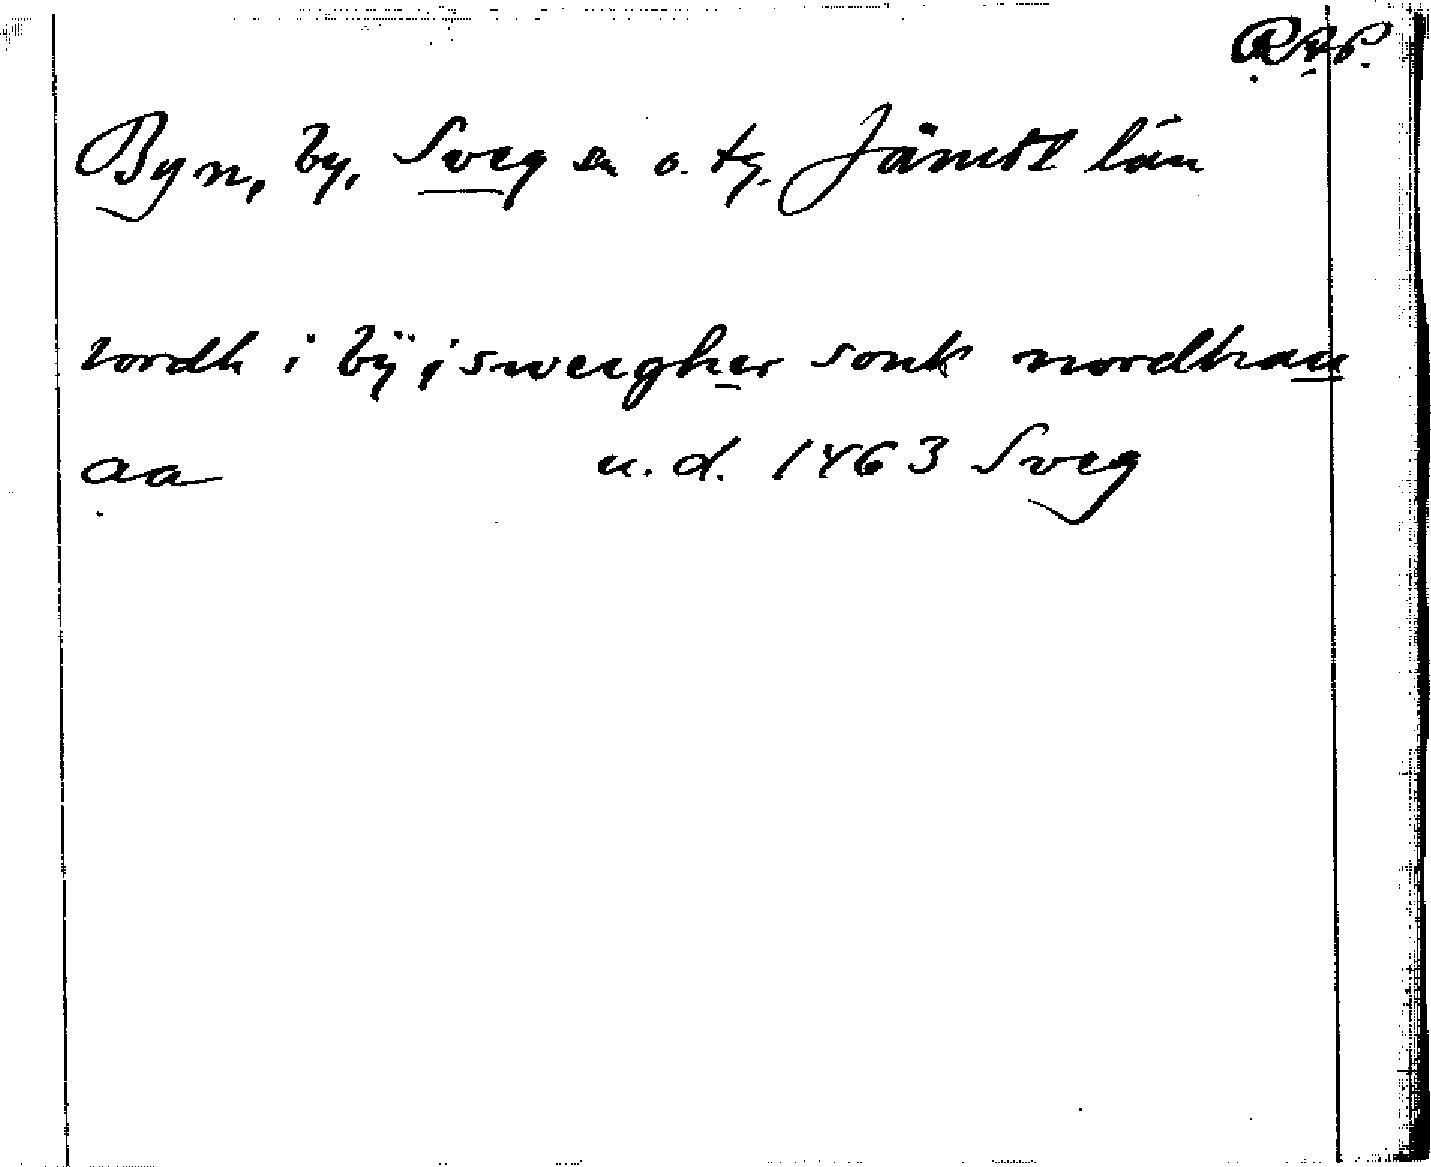 Byn, by, Sveg sn o. tg. Jämtl län
tordh i bÿ i sweegher sonk nordhan
aa u. d. 1463 Sveg